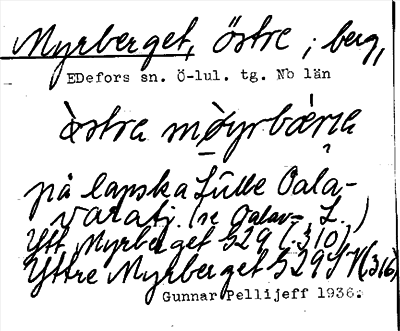 Myrberget, östre ; berg,
EDefors sn. Ö-lul. tg. Nb län
östra möyrbærja
på lapska Lulle Oala-
varatj. (se Oalav= L.)
Ytt Myrberget 529 (310)
Yttre Myrberget 529 (316)
Gunnar Pellijeff 1936.